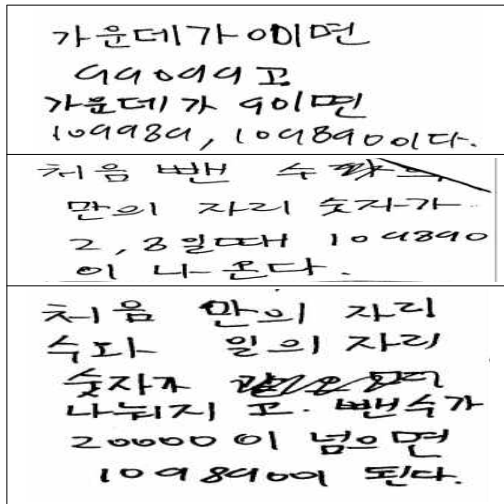 가운데가 0이면
99099고
가운데가 9이면
109989, 109890이다.
처음 뺀 수
만의 자리 숫자가
2, 3일때 109890
이 나온다.
처음 만의 자리
수와 일의 자리
숫자가
나눠지고. 뺀수가
20000이 넘으면
109890이 된다.